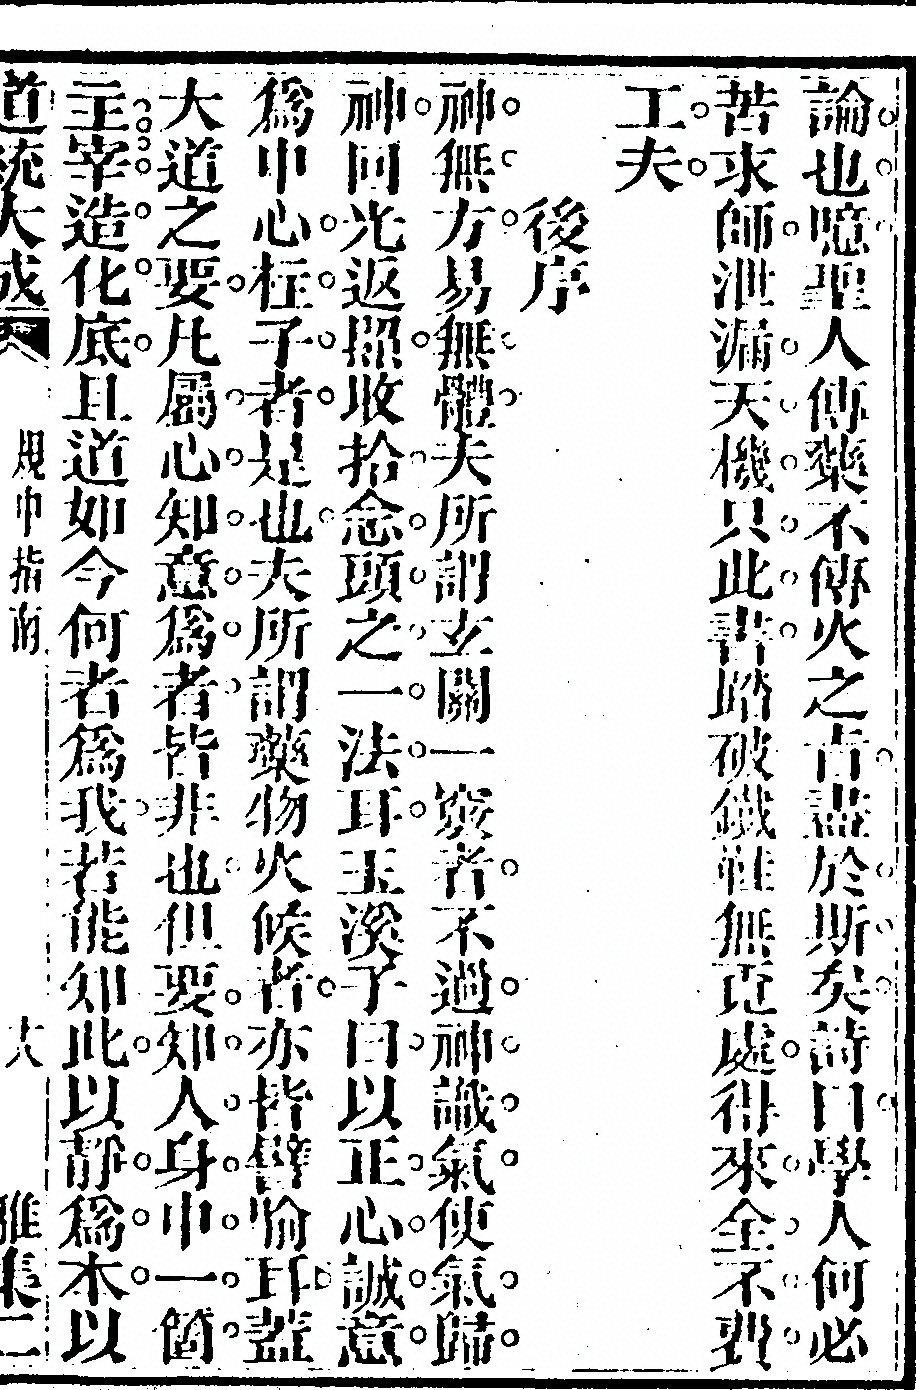 論也噫聖人傳藥不傳火之古盡於斯矣詩曰學人何必
苦求師泄漏天機只此書踏破鐵鞋無覓處得來全不費
工夫
後序
神無方易無體夫所謂玄關一竅者不過神識氣使氣歸
神回光返照收拾念頭之一法耳玉溪子曰以正心誠意
爲中心柱子者是也夫所謂藥物火候者亦皆譬喻耳蓋
大道之要凡屬心知意爲者皆非也但要知人身中一箇
主宰造化底且道如今何者爲我若能知此以靜爲本以
道統大成 規中指南 大 雅集二